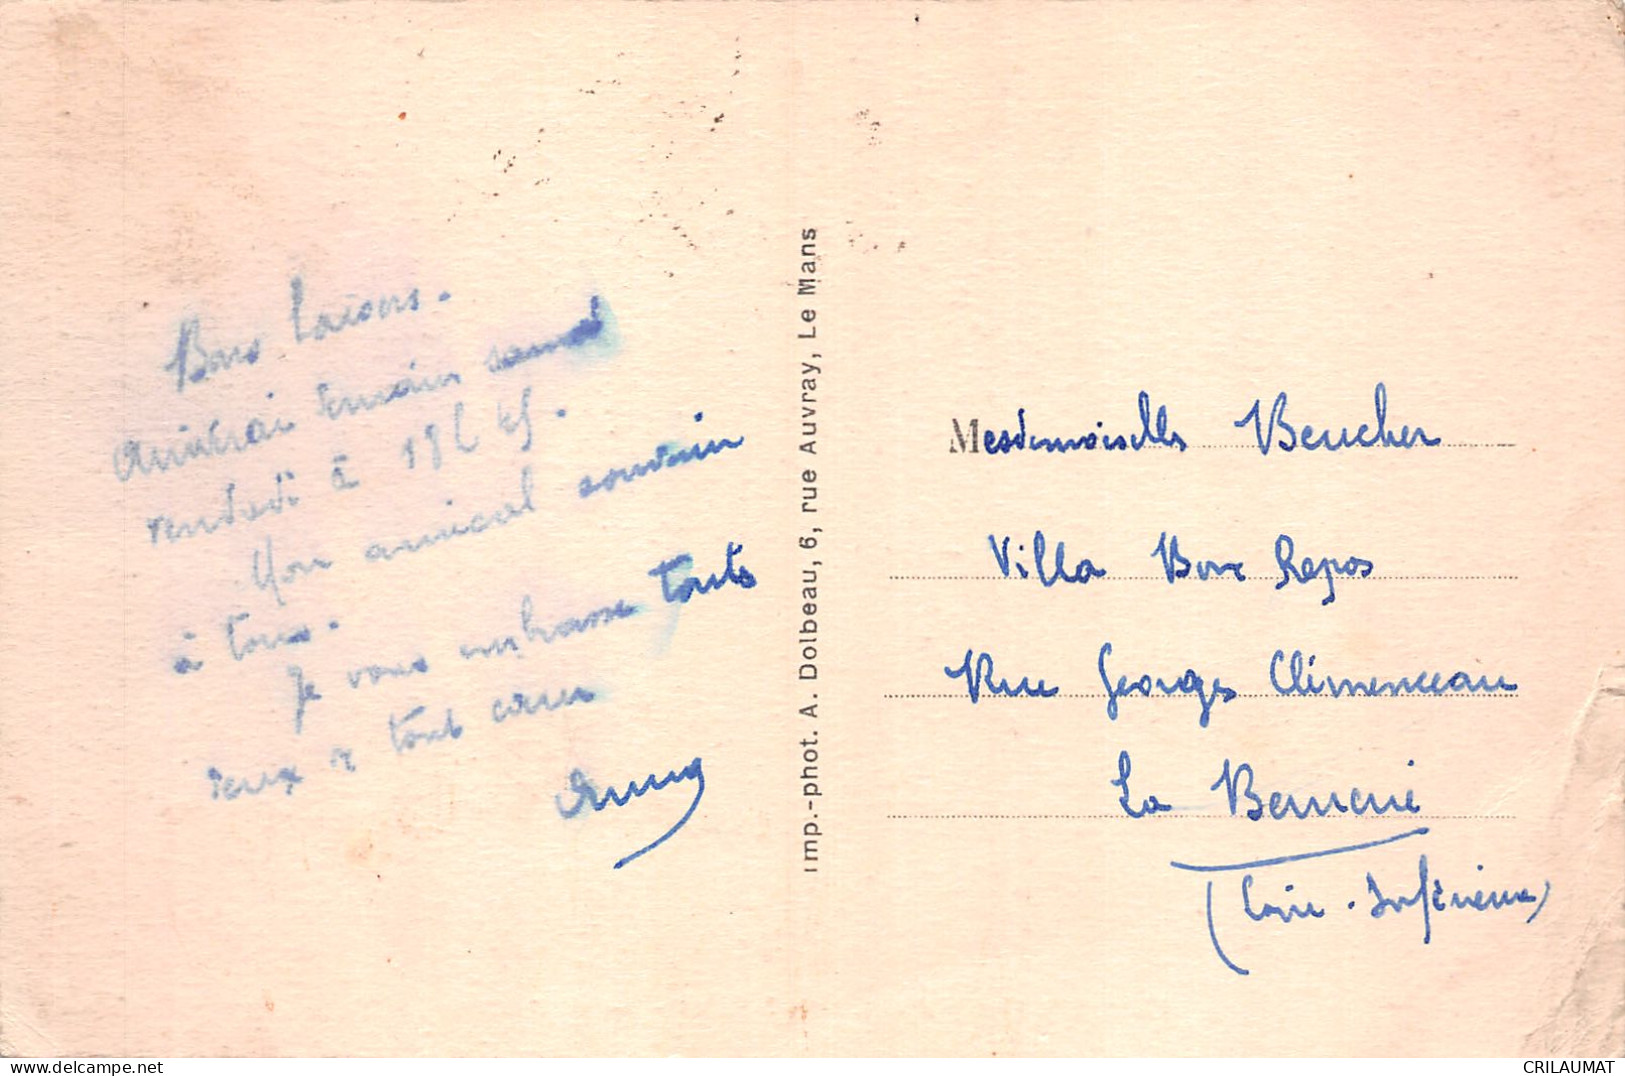 Bons baisers.
Arriverai demain
vendredi à 18 h 45.
Mon amical souvenir
à tous.
Je vous embrasse toutes
deux de tout cœur
Imp.-phot. A. Dolbeau, 6, rue Auvray, Le Mans
Mesdemoiselles Beucher
Villa Bon Repos
Rue Georges Clémenceau
La Bernerie
(Loire-Inférieure)
delcampe.net
CRILAUMAT